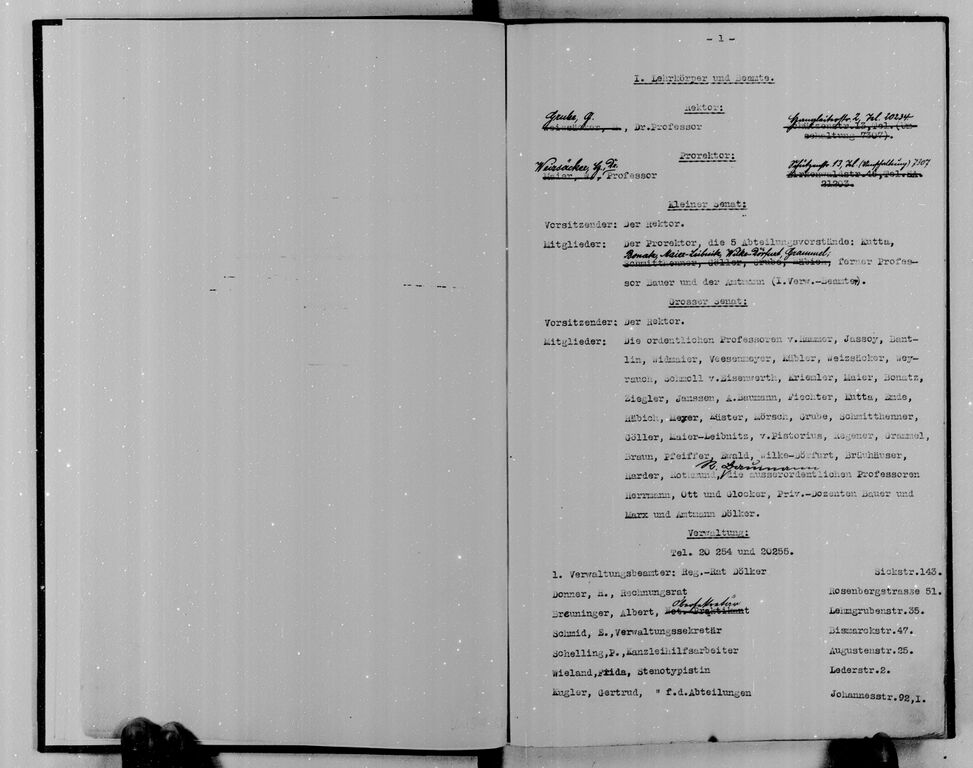 - 1 -
I. Lehrkörper und Beamte.
Rektor:
Grube, G.
Weizsäcker, , Dr.Professor
Tel. 20254
Tel.(Um-
schaltung 7307).
Prorektor:
Weizsäcker, Dr.
Maier, , Professor
13, Tel. (Umschaltung) 7307
Birkenwaldstr.46, Tel.SA.
21203.
Kleiner Senat:
Vorsitzender: Der Rektor.
Mitglieder: Der Prorektor, die 5 Abteilungsvorstände: Kutta,
Bonatz, Maier-Leibnitz, Wilke-Dörfurt, Grammel;
Schmitthenner, Göller, Grube, Häbich, ferner Profes-
sor Bauer und der Amtmann (I.Verw.-Beamte).
Grosser Senat:
Vorsitzender: Der Rektor.
Mitglieder: Die ordentlichen Professoren v.Hammer, Jassoy, Bant-
lin, Widmaier, Veesenmeyer, Kübler, Weizsäcker, Wey-
rauch, Schmoll v.Eisenwerth, Kriemler, Maier, Bonatz,
Ziegler, Janssen, A.Baumann, Fiechter, Kutta, Emde,
Häbich, Meyer, Küster, Mörsch, Grube, Schmitthenner,
Göller, Maier-Leibnitz, v.Pistorius, Regener, Grammel,
Braun, Pfeiffer, Ewald, Wilke-Dörfurt, Bräuhäuser,
R. Baumann
Harder, Rothmund, die ausserordentlichen Professoren
Herrmann, Ott und Glocker, Priv.-Dozenten Bauer und
Marx und Amtmann Dölker.
Verwaltung:
Tel. 20 254 und 20255.
1. Verwaltungsbeamter: Reg.-Rat Dölker Sickstr.143.
Donner, H., Rechnungsrat Rosenbergstrasse 51.
Obersekretär
Breuninger, Albert, Not. Praktikant Lehmgrubenstr.35.
Schmid, E.,Verwaltungssekretär Bismarckstr.47.
Schelling,P.,Kanzleihilfsarbeiter Augustenstr.25.
Wieland,Frida, Stenotypistin Lederstr.2.
Kugler, Gertrud, " f.d.Abteilungen Johannesstr.92,I.